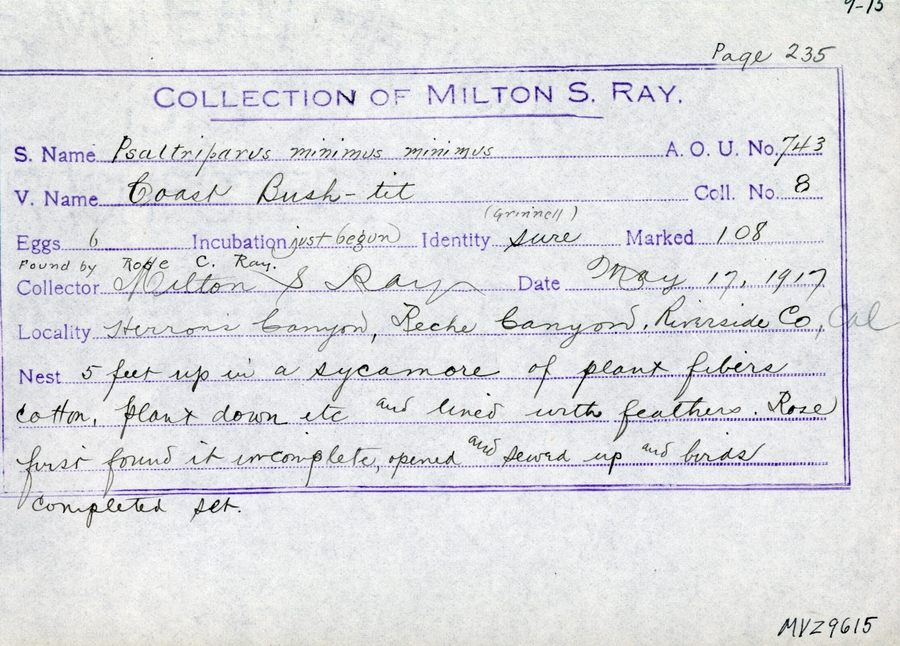 9-15
Page 235
COLLECTION OF MILTON S. RAY.
S. Name Psaltriparus minimus minimus A. O. U. No. 743
V. Name Coast Bush-tit Coll. No. 8
(Grinnell)
Eggs 6 Incubation just begun Identity sure Marked 108
Found by Rose C. Ray.
Collector Milton S Ray Date May 17, 1917
Locality Herrons Canyon, Reche Canyon, Riverside Co, Cal
Nest 5 feet up in a sycamore of plant fibers
cotton, plant down etc and lined with feathers. Rose
first found it incomplete, opened and sewed up and birds
completed set.
MVZ9615